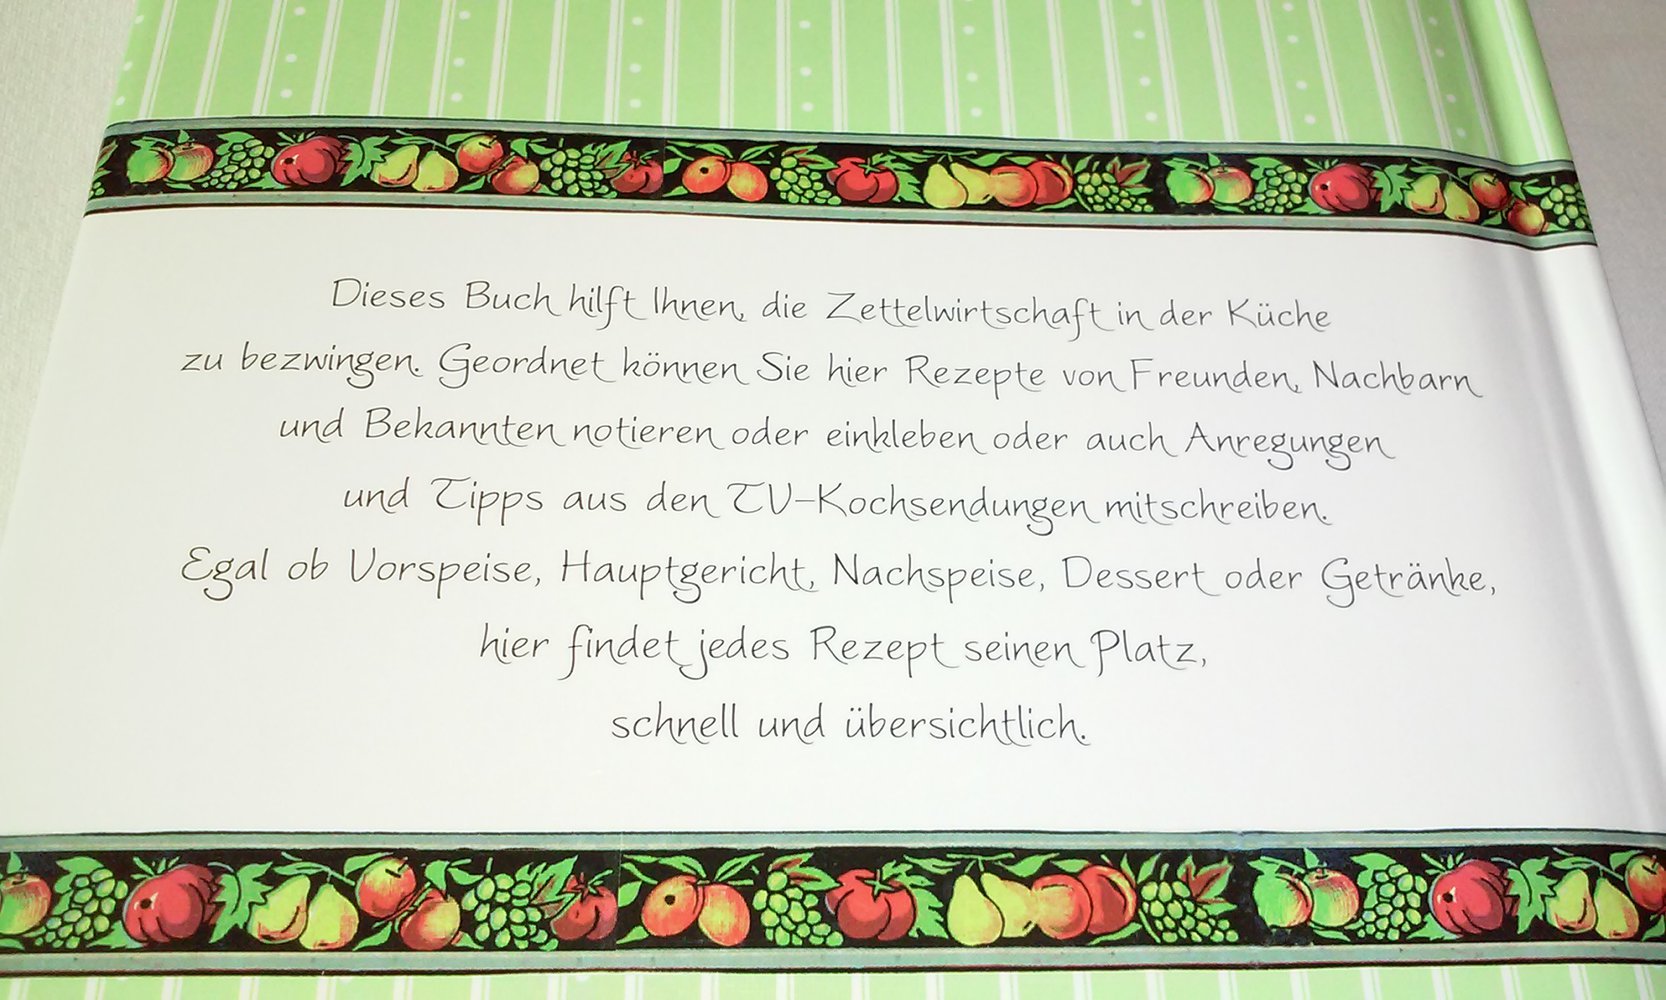 Dieses Buch hilft Ihnen, die Zettelwirtschaft in der Küche
zu bezwingen. Geordnet können Sie hier Rezepte von Freunden, Nachbarn
und Bekannten notieren oder einkleben oder auch Anregungen
und Tipps aus den TV-Kochsendungen mitschreiben.
Egal ob Vorspeise, Hauptgericht, Nachspeise, Dessert oder Getränke,
hier findet jedes Rezept seinen Platz,
schnell und übersichtlich.